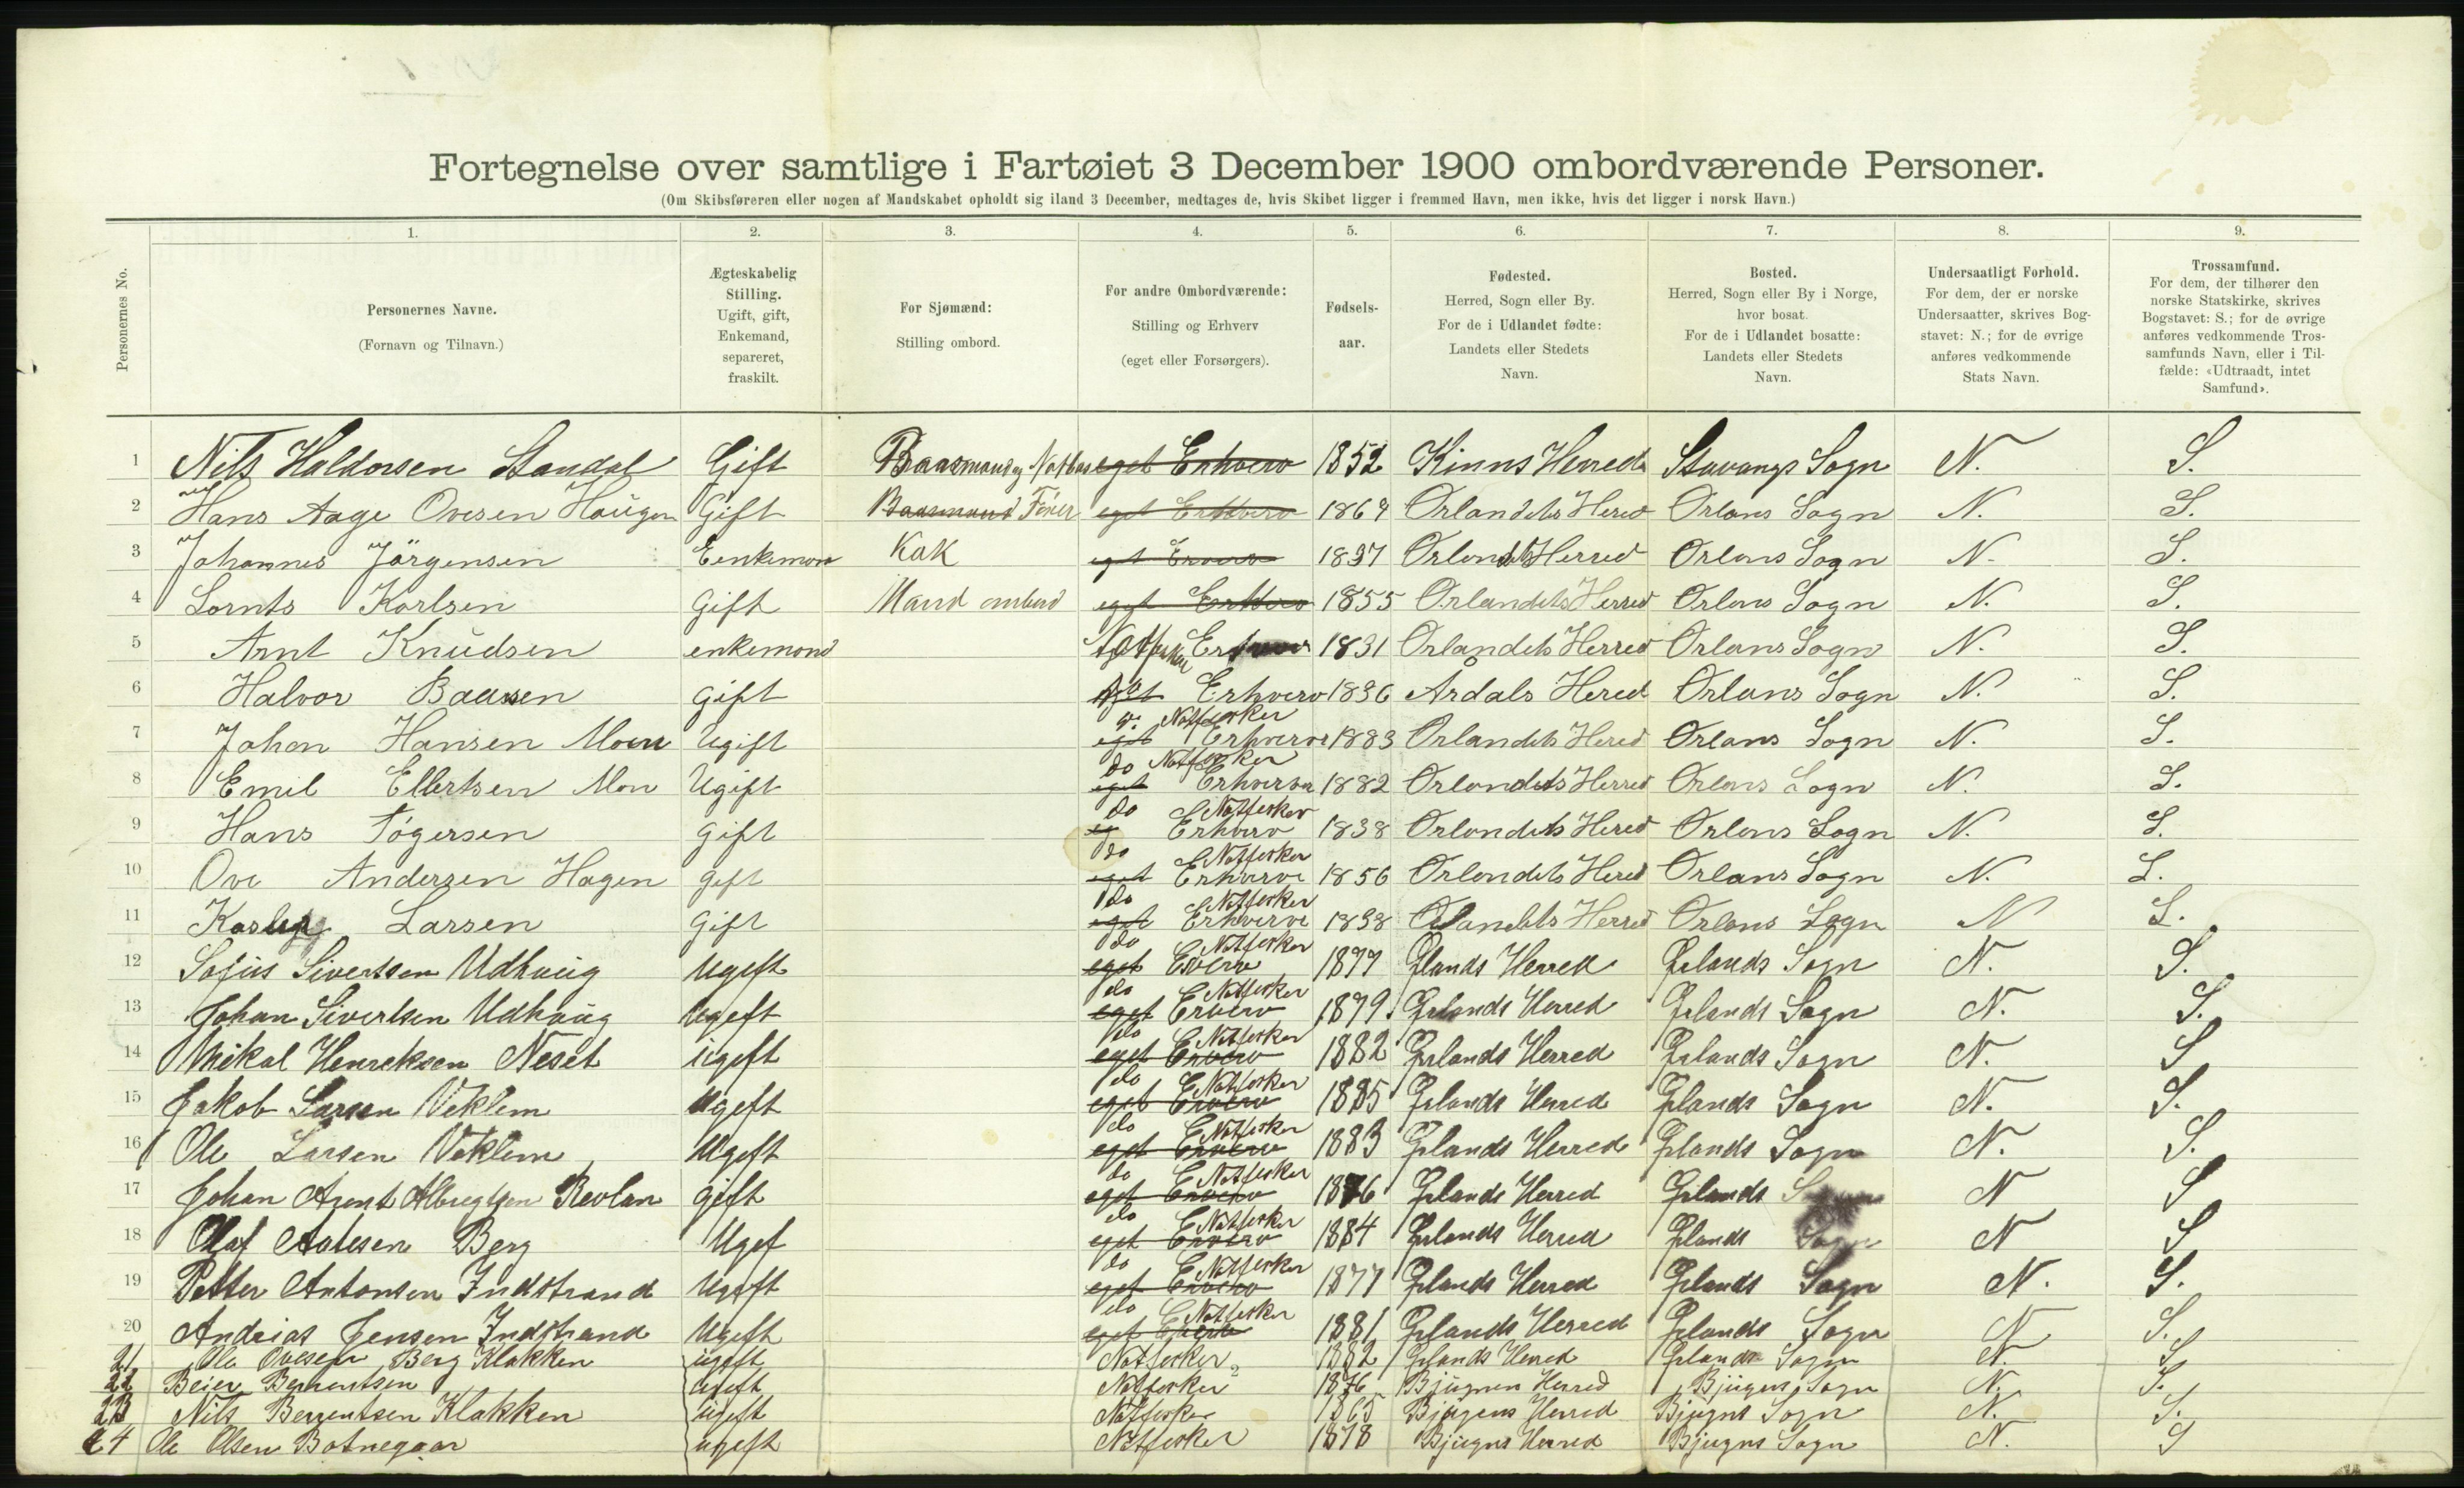 Fortegnelse over samtlige i Fartøiet 3 December 1900 ombordværende Personer.
(Om Skibsføreren eller nogen af Mandskabet opholdt sig iland 3 December, medtages de, hvis Skibet ligger i fremmed Havn, men ikke, hvis det ligger i norsk Havn.)
Personernes No.
1.
Personernes Navne.
(Fornavn og Tilnavn.)
2.
Ægteskabelig
Stilling.
Ugift, gift,
Enkemand,
separeret,
fraskilt.
3.
For Sjømænd:
Stilling ombord.
4.
For andre Ombordværende:
Stilling og Erhverv
(eget eller Forsørgers).
5.
Fødsels-
aar.
6.
Fødested.
Herred, Sogn eller By.
For de i Udlandet fødte:
Landets eller Stedets
Navn.
7.
Bosted.
Herred, Sogn eller By i Norge,
hvor bosat.
For de i Udlandet bosatte:
Landets eller Stedets
Navn.
8.
Undersaatligt Forhold.
For dem, der er norske
Undersaatter, skrives Bog-
stavet: N.; for de øvrige
anføres vedkommende
Stats Navn.
9.
Trossamfund.
For dem, der tilhører den
norske Statskirke, skrives
Bogstavet: S.; for de øvrige
anføres vedkommende Tros-
samfunds Navn, eller i Til-
fælde: «Udtraadt, intet
Samfund».
1 Nils Haldorsen Standal Gift Baasmand og eget Erhverv 1852 Kinns Herred Stavangs Sogn N. S.
2 Hans Aage Ovesen Haugen Gift Baasmand eget Erhverv 1864 Orlandets Hered Orlans Sogn N. S.
3 Johannes Jörgensen Eenkemon Kok 1837 Orlandets Herred Orlans Sogn N. S.
4 Lornts Karlsen Gift Mand ombord eget 1855 Orlandets Herred Orlans Sogn N. S.
5 Arnt Knudsen enkemond Notfisker 1831 Orlandets Herred Orlans Sogn N. S.
6 Halvor Baussen gift Erhverv 1836 Årdals Hered Orlans Sogn N. S.
Notfisker
7 Johan Hansen Moen Ugift eget Erhverve 1883 Orlandets Hered Orlans Sogn N. S.
do Notfisker
8 Emil Ellertsen Mon Ugift eget Erhverve 1882 Orlondets Herred Orlans Sogn N. S.
do Notfisker
9 Hans Tögersen gift eg Erhverv 1838 Orlondets Hered Orlans Sogn N. S.
do Notfisker
10 Ove Andersen Hagen gift eget Erhverve 1856 Orlondets Hered Orlans Sogn N. S.
do Notfisker
11 Larsen Gift eget Erhverve 1838 Olandets Herred Orlans Sogn N S.
do Notfisker
12 Sofus Sivertsen Udhaug Ugeft eget Erverv 1877 Ølands Herred Ørlands Sogn N. S.
do Notfisker
13 Johan Sivertsen Udhaug Ugeft eget Erverv 1879 Ørlands Herred Ørlands Sogn N. S.
do Notfisker
14 Mikal Henreksen Neset ugeft eget Erverv 1882 Ørlands Herred Ørlands Sogn N. S
do Notfisker
15 Jakob Larsen Veklem Ugeft eget Erverv 1885 Ørlands Herred Ørlands Sogn N. S.
do Notfisker
16 Ole Larsen Veklem Ugeft eget Erverv 1883 Ørlands Herred Ørlands Sogn N. S.
do Notfisker
17 Johan Arent Albregtsen Revlan gift eget Erverv 1876 Ørlands Herred Ørlands N S
do Notfisker
18 Olaf Berg Ugef eget Erverv 1884 Ørlands Herred Ørlands Sogn N S
do Notfisker
19 Petter Antonsen Indstrand Ugeft eget Erverv 1877 Ørlands Herred Ørlands Sogn N. S.
do Notfisker
20 Andreas Jensen Indstrand Ugeft eget 1881 Ørlands Herred Ørlands Sogn N S.
21 Ole Ovesen Berg Klakken ugeft Notfisker 1882 Ørlands Herred Ørlands Sogn N. S
22 Beier Berrentsen ugeft Notfisker 1876 Bjugnen Herred Bjugens Sogn N. S.
23 Nils Berrentsen Klakken ugeft Notfisker 1865 Bjugens Herred Bjugns Sogn N. S.
24 Ole Olsen Botnegaar ugeft Notfisker 1878 Bjugns Herred Bjugns Sogn N. S